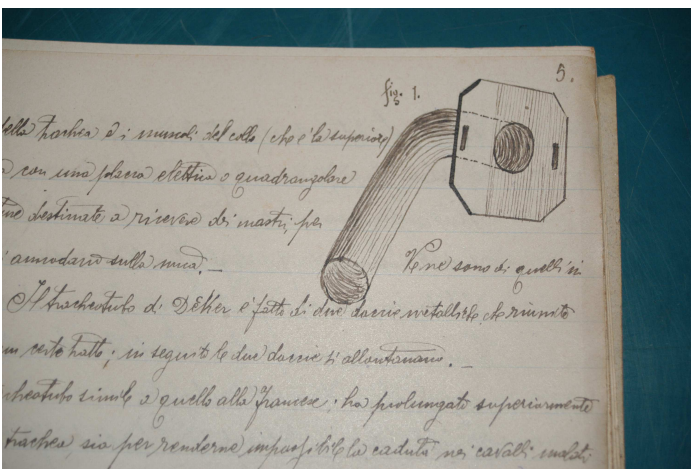 5.
fig. 1.
della trachea e i muscoli del collo (che è la superiore)
con una placca elettica o quadrangolare
destinate a ricevere dei nastri per
annodarsi sulla nuca. _
Ve ne sono di quelli in
Il tracheotubo di Dékker è fatto di due doccie metalliche, che riunite
un certo tratto; in seguito le due doccie si allontanano. _
tracheotubo simile a quello alla francese: ha prolungato superiormente
trachea, sia per renderne impossibile la caduta nei cavalli malati